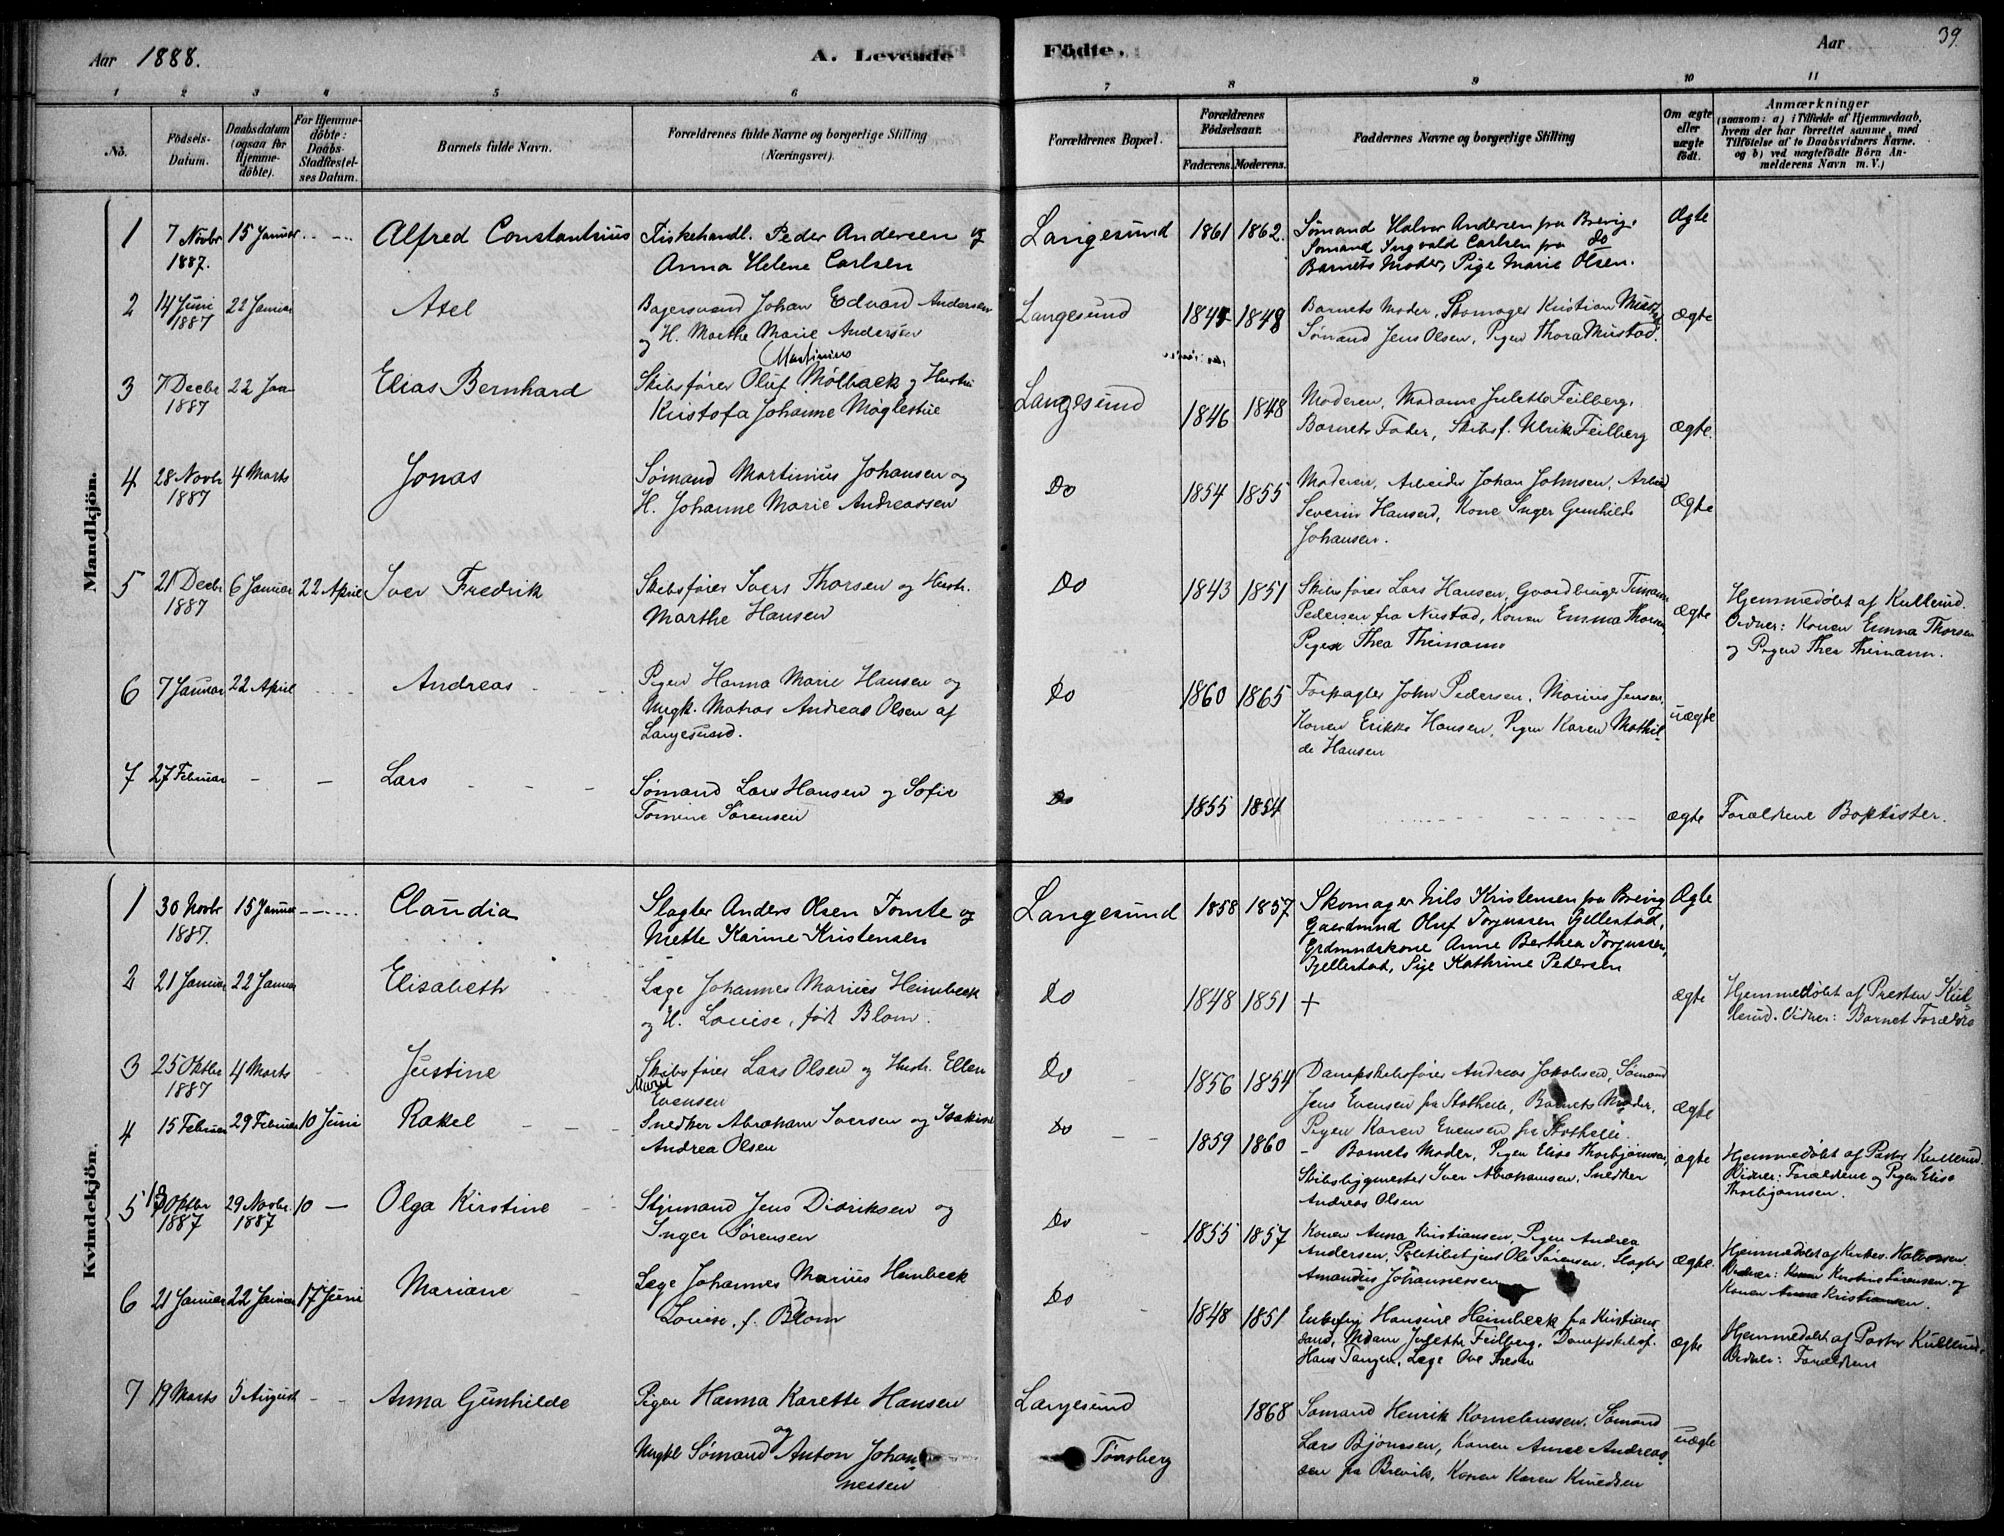 Aar 1888. A. Levende Födte. Aar 39.
1 2 3 4 5 6 7 8 9 10 11
No.
Födsels-Datum.
Daabsdatum (ogsaa for Hjemme-döbte).
For Hjemme-döbte: Daabs-Stadfæstel-ses Datum.
Barnets fulde Navn.
Forældrenes fulde Navne og borgerlige Stilling (Næringsvei).
Forældrenes Bopæl.
Forældrenes Födselsaar.
Faderens. Moderens.
Faddernes Navne og borgerlige Stilling
Om ægte eller uægte födt.
Anmærkninger
(saasom: a) i Tilfælde af Hjemmedaab, hvem der har forrettet samme, med Tilföielse af to Daabsvidners Navne. og b) ved uægtefödte Börn An-melderens Navn m. V.)
Mandkjön.
1 7 Novbr 1887. 15 Januar Alfred Constantinius
Fiskehandl. Peder Andersen og
Anna Helene Carlsen
Langesund 1861 1862.
Sømand Halvor Andersen fra Brevig.
Sømand Ingvald Carlsen fra do
Barnets Moder, Pige Marie Olsen.
Ægte
2 14 Juni 1887 22 Januar Axel
Johan Edvard Andersen
og H. Marthe Marie Andersen
Langesund 1848
Barnets Moder, Skomager Kristian
Sømand Jens Olsen, Pigen Thora Mustad.
ægte
3 7 Decbr 1887 22 Jan Elias Bernhard
Martinius
Skibsfører Oluf Mølback og Hustru
Kristofa Johanne Møglestue
Langesund 1846 1848
Moderen, Madame Julette Feilberg,
Barnets Fader, Skibsf. Ulrik Feilberg
ægte.
4 28 Novbr 1887 4 Marts Jonas
Sømand Martinius Johansen og
H. Johanne Marie Andreassen
Do 1854 1855
Moderen, Arbeider Johan Johnsen, Arbeid
Severin Hansen, Kone Inger Gunhilde
Johansen.
ægte
5 21 Decbr 1887 6 Januar 22 April Iver Fredrik
Skibsfører Ivers Thorsen og Hustr.
Marthe Hansen
Do 1843 1851
Skibsfører Lars Hansen, Gaardbruger Timann
Pedersen fra Nustad, Konen Emma Thorsen
Pigen Thea Theimann
ægte
Hjemmedøbt af Kullerud.
Vidner: Konen Emma Thorsen
og Pigen Thea Theimann.
6 7 Januar 22 April Andreas
Pigen Hanna Marie Hansen og
Ungk. Matros Andreas Olsen af
Langesund.
Do 1860 1865
Forpagter John Pedersen, Marius Jensen,
Konen Erikke Hansen, Pigen Karen Mathil-
de Hansen
uægte
7 27 Februar Lars
Sømand Lars Hansen og Sofie
Tomine Sørensen
Do 1855 1854
ægte
Forældrene Baptister.
Kvindekjön.
1 30 Novbr 1887. 15 Januar Claudia
Slagter Anders Olsen Tomte og
Mette Karine Kristensen
Langesund 1858 1857
Skomager Nils Kristensen fra Brevig
Gaardmand Oluf Torjussen Gjellestad,
Grdmandskone Anne Berthea Torjussen,
Gjellestad, Pige Kathrine Petersen
Ægte
2 21 Januar 22 Januar Elisabeth
Læge Johannes Marius Heimbeck
og H. Louise, født Blom.
Do 1848 1851 +
ægte
Hjemmedøbt af Presten Kul-
lerud. Vidner: Barnet Forældre
3 25 Oktbr 1887 4 Marts Justine
Skibsfører Lars Olsen og Hustr. Ellen
Marie
Evensen
Do 1856 1854
Dampskibsfører Andreas Jakobsen, Sømand
Jens Evensen fra Stathelle, Barnets Moder,
Pigen Karen Evensen fra Stathelle.
ægte
4 15 Februar 29 Februar 10 Juni Rakel
Snedker Abraham Iversen og
Andrea Olsen
Do 1859 1860
Barnets Moder, Pigen Elise Thorbjørnsen,
Skibsbygmester Iver Abrahamsen, Snedker
Andreas Olsen
ægte
Hjemmedøbt af Pastor Kullerud.
Vidner: Forældrene og Pigen Elise
Thorbjørnsen.
5 Oktbr 1887 29 Novbr. 1887 10 — Olga Kirstine
Styrmand Jens Didriksen og
Inger Sørensen
Do 1855 1857
Konen Anna Kristiansen, Pigen Andrea
Andersen, Politibetjent Ole Sørensen, Slagter
Amandus Johannessen
ægte.
Hjemmedøbt af Kirkes. Halvorsen.
Vidner: Kirstine Sørensen og
Konen Anna Kristiansen.
6 21 Januar 22 Januar 17 Juni Mariane
Læge Johannes Marius Heimbeck
Louise, f. Blom
Do 1848 1851
Enkefru Hansine Heimbeck fra Kristian-
sand, Mdam Julette Feilberg, Dampskibsf.
Hans Tangen, Læge Ove
ægte
Hjemmedøbt af Pastor Kullerud.
Vidner: Forældrene
7 19 Marts 5 August Anna Gunhilde
Pigen Hanna Karette Hansen
og
Ungkl Sømand Anton Johan-
nessen
Langesund
Tønsberg
1868
Sømand Henrik Korneliussen, Sømand
Lars Bjønssen, Konen Anne Andreas-
sen fra Brevik, Konen Karen Knudsen
uægte